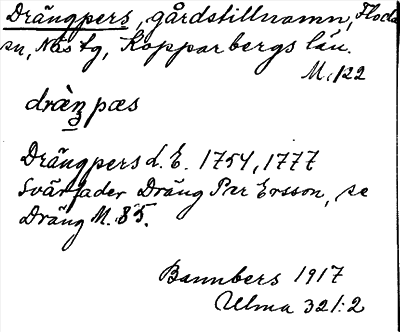 Drängpers, gårdstillnamn, Floda
sn, Nås tg, Kopparbergs län.
M. 122
dräŋpæs
Drängpers d. E. 1754, 1777
Svärfader Dräng Per Ersson, se
Dräng M. 85.
Bannbers 1917
Ulma 321:2